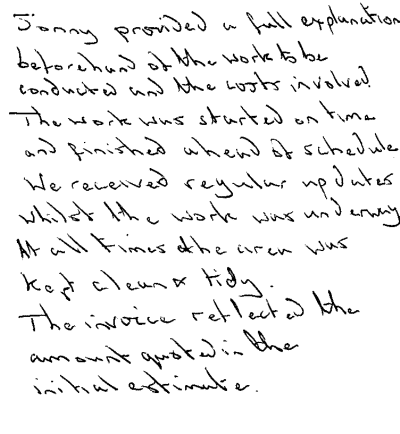 Jonny provided a full explanation
beforehand of the work to be
conducted and the costs involved.
The work was started on time
and finished ahead of schedule
We received regular updates
whilst the work was underway
At all times the area was
kept clean & tidy.
The invoice reflected the
amount quoted in the
initial estimate.